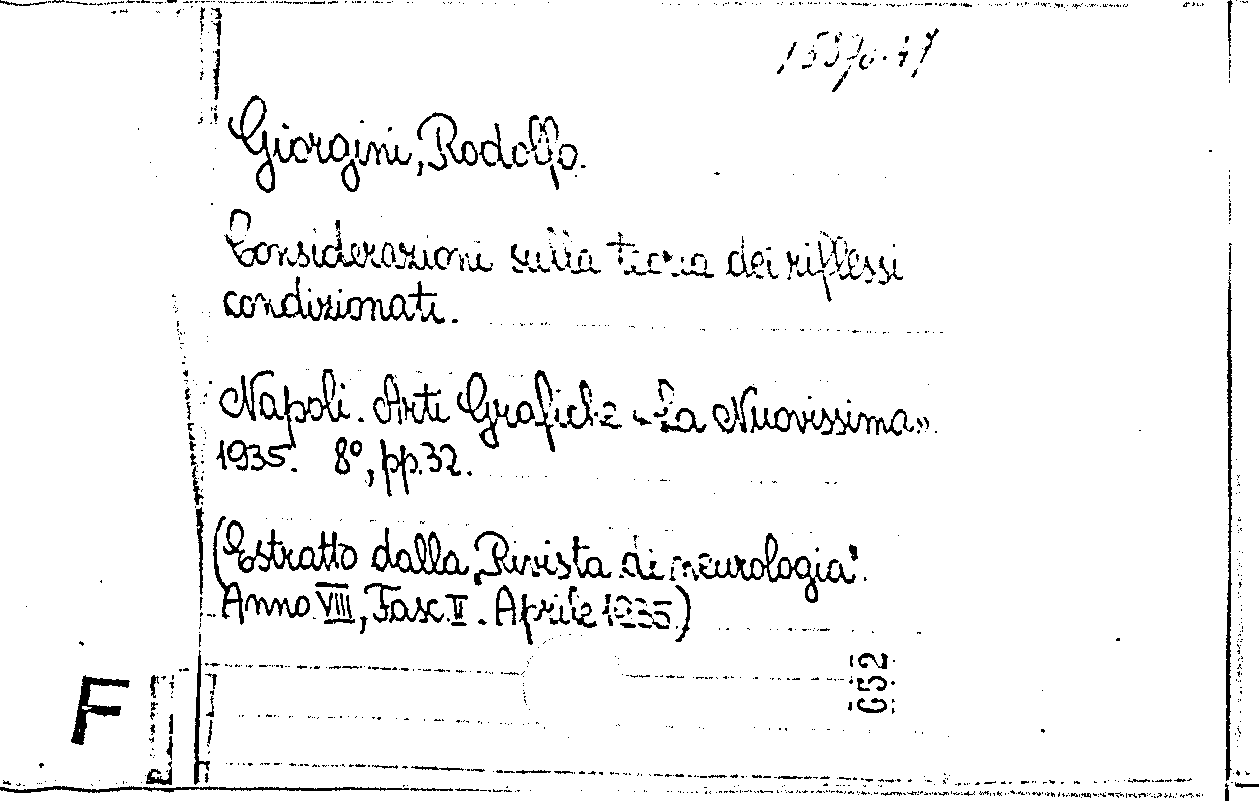 15970.47
Giorgini, Rodolfo.
Considerazioni sulla teoria dei riflessi
condizionati.
Napoli. Arti Grafiche «La Nuovissima».
1935. 8º, pp.32.
(Estratto dalla „Rivista di neurologia".
Anno VIII, Fasc. II. Aprile 1935)
G52
F